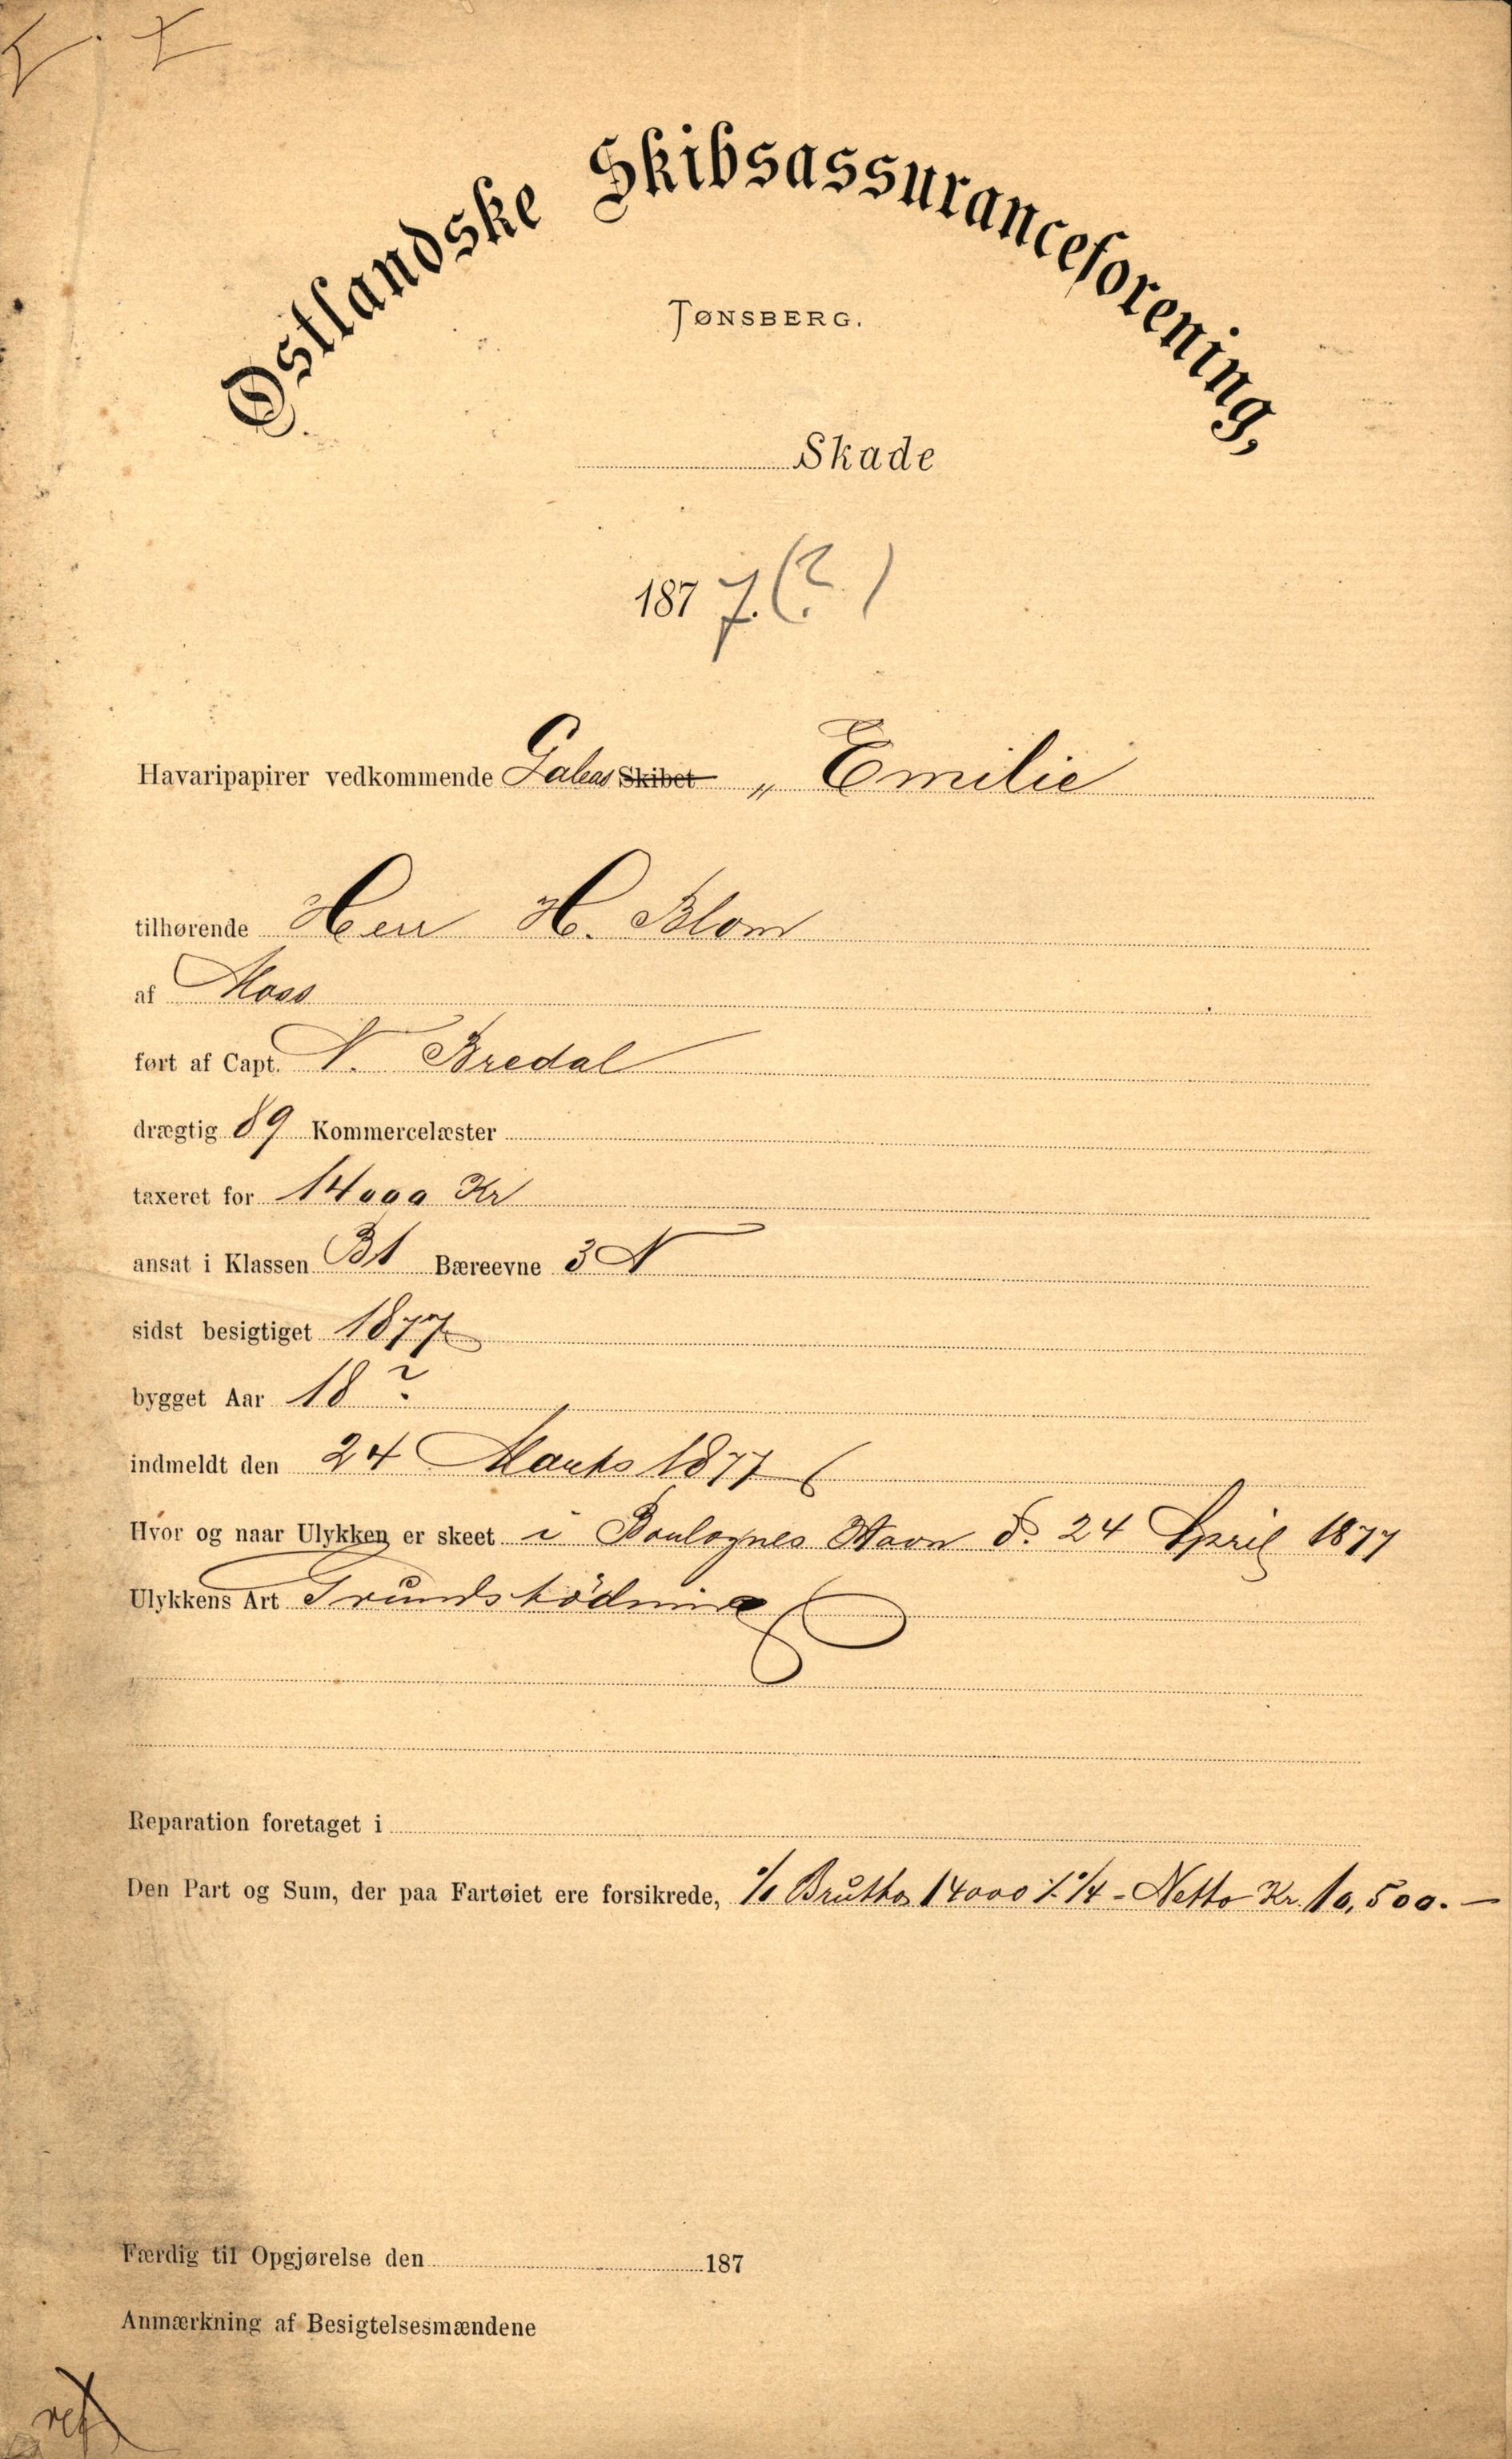 Østlandske Skibsassuranceforening,
TØNSBERG.
Skade
1877.(?)
Havaripapirer vedkommende Galeas Skibet „Emilie
tilhørende Herr H. Blom
af Moss
ført af Capt. N. Bredal
drægtig 89 Kommercelæster
taxeret for 14000 Kr
ansat i Klassen B1 Bæreevne 3 N
sidst besigtiget 1877
bygget Aar 18?
indmeldt den 24 Marts 1877
Hvor og naar Ulykken er skeet i Boulognes Havn d. 24 April 1877
Ulykkens Art Grundstödning
Reparation foretaget i
Den Part og Sum, der paa Fartøiet ere forsikrede, Brutto 14000 ⁒ 1/4 - Netto Kr. 10,500.—
Færdig til Opgjørelse den 187
Anmærkning af Besigtelsesmændene